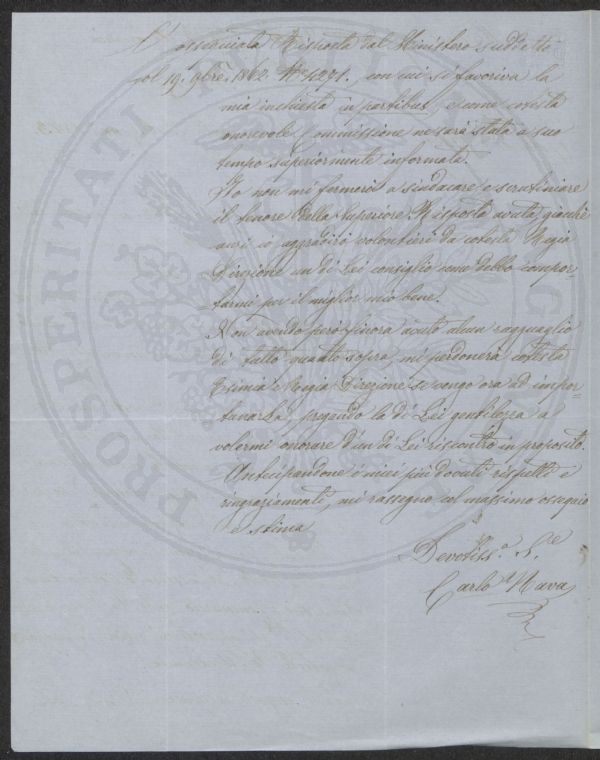 L'ossequiata Risposta dal Ministero suddetto
ol 19. 9bre. 1862. N° 4271., con cui si favoriva la
mia inchiesta in partibus, e come cotesta
onorevole Commissione ne sarà stata a suo
tempo superiormente informata.
Io non mi fermerò a sindacare, o scrutiniare
il tenore della Superiore Risposta avuta, giacchè
anzi io aggradirò volontieri da cotesta Regia
Direzione un di Lei consiglio come debbo compor=
tarmi per il miglior mio bene.
Non avendo però finora avuto alcun ragguaglio
di tutto quanto sopra, mi perdonerà cotesta
Esimia e Regia Direzione se vengo ora ad impor=
tunarLa, pregando la di Lei gentilezza a
volermi onorare d'un di Lei riscontro in proposito.
Anticipandone i miei più dovuti rispetti e
ringraziamenti, mi rassegno col massimo ossequio
e stima
Devotiss.° S.e
Carlo Nava
PROSPERITATI PUBLICÆ